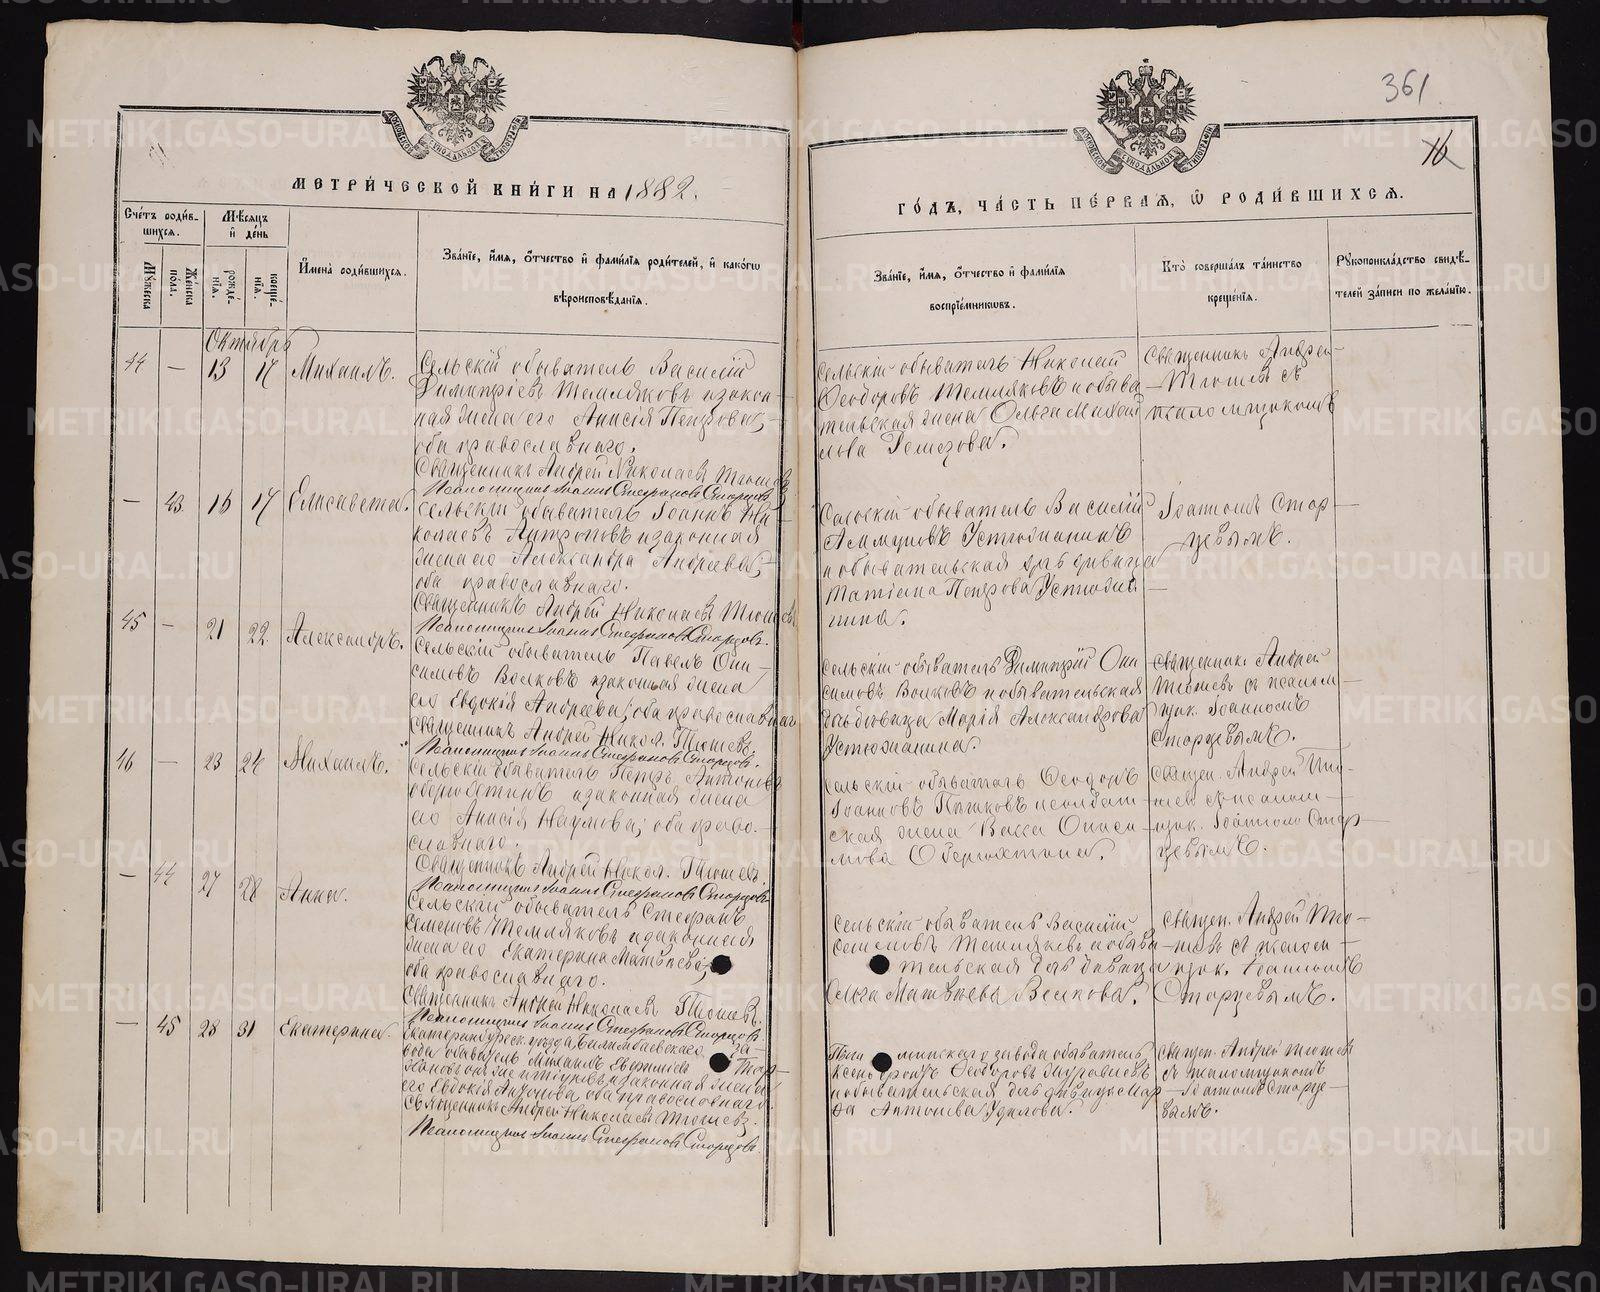 361
16
МЕТРИ́ЧЕСКОЙ КНИ́ГИ НА 1882.
ГО́ДЪ, ЧА́СТЬ ПЕ́РВАѦ, Ѽ РОДИ́ВШИХСѦ.
Сче́тъ роди́в-
шихсѧ.
Мꙋжеска
Же́нска
по́ла.
Мѣ́сѧцъ
и҆ де́нь
рожде́-
нїѧ.
креще́-
нїѧ.
И҆мена̀ роди́вшихсѧ.
Зва́нїе, и҆́мѧ, ѻ҆́тчество и҆ фами́лїѧ роди́телей, и҆ како́гѡ
вѣроисповѣ́данїѧ.
Зва́нїе, и҆́мѧ, ѻ҆́тчество и҆ фами́лїѧ
воспрїе́мникѡвъ.
Кто̀ соверша́лъ та́инство
креще́нїѧ.
Рꙋкоприкла́дство свидѣ́-
телей за́писи по жела́нїю.
Октябрь
44 — 13 17 Михаилъ.
Сельскій обыватель Василій
Димитріевъ Темляковъ и закон-
ная жена его Анисія Петрова,
оба православнаго.
Священникъ Андрей Николаевъ Тюшевъ
Псаломщикъ Іоаннъ Стефановъ Старцевъ
Сельскій обыватель Николай
Ѳеодоровъ Темляковъ и обыва-
тельская жена Ольга Михай
лова
Священникъ Андрей
Тюшевъ съ
псаломщикомъ
— 43 16 17 Елисавета.
Сельскій обыватель Іоаннъ Ни-
колаевъ Антроповъ и законная
жена его Александра Андреева,
оба православнаго.
Священникъ Андрей Николаевъ Тюшевъ
Псаломщикъ Іоаннъ Стефановъ Старцевъ.
Сельскій обыватель Василій
Устюжанинъ
и обывательская дочь девица
Татіана Петрова Устюжа-
нина.
Іоанномъ Стар-
цевымъ.
45 — 21 22 Александръ.
Сельскій обыватель Павелъ Они-
симовъ Волковъ и законная жена
его Евдокія Андреева; оба православнаго
Священникъ Андрей Никол. Тюшевъ.
Псаломщикъ Іоаннъ Стефановъ Старцевъ.
Сельскій обыватель Димитрій Они
симовъ Волковъ и обывательская
дочь девица Марія Александрова
Устюжанина.
Священник. Андрей
Тюшевъ съ псалом-
щик. Іоанномъ
Старцевымъ.
46 — 23 24 Михаилъ.
Сельскій обыватель Петръ Антоновъ
Оберюхтинъ и законная жена
его Анисія Наумова; оба право-
славнаго.
Священникъ Андрей Никол. Тюшевъ
Псаломщикъ Іоаннъ Стефановъ Старцевъ
Сельскій обыватель Ѳеодоръ
Іоанновъ
ская жена Васса Ониси-
мова Оберюхтина.
Священ. Андрей Тю-
шевъ съ псалом-
щик. Іоанномъ Стар-
цевымъ.
— 44 27 28 Анна.
Сельскій обыватель Стефанъ
Семеновъ Темляковъ и законная
жена его Екатерина Матвѣева;
оба православнаго.
Священникъ Андрей Николаевъ Тюшевъ.
Псаломщикъ Іоаннъ Стефановъ Старцевъ
Сельскій обыватель Василій
Семеновъ Темляковъ и обыва-
тельская дочь девица
Ольга Матвѣева Волкова.
Священ. Андрей Тю-
шевъ съ псалом-
щик. Іоанномъ
Старцевымъ.
— 45 28 31 Екатерина.
Екатеринбургск. уѣзда Билимбаевскаго за-
вода обыватель Михаилъ Евѳиміевъ
и законная жена
его Евдокія Антонова оба православнаго.
Священникъ Андрей Николаевъ Тюшевъ.
Псаломщикъ Іоаннъ Стефановъ Старцевъ.
завода обыватель
Ксенофонтъ Ѳеодоровъ Журавлевъ
и обывательская дочь девица Мар-
ѳа Антонова Удилова.
Священ. Андрей Тюшевъ
съ псаломщикомъ
Іоанномъ Старце-
вымъ.
METRIKI.GASO-URAL.RU